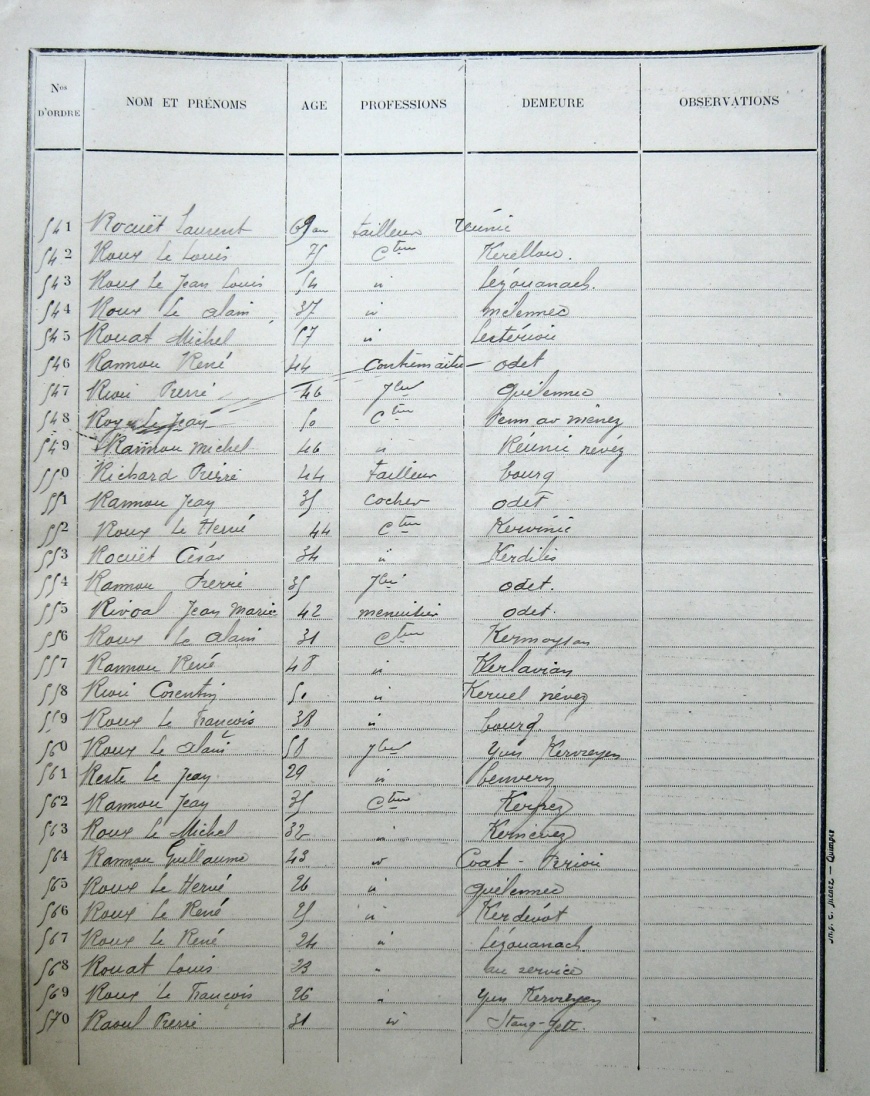 Nos D'ORDRE NOM ET PRÉNOMS AGE PROFESSIONS DEMEURE OBSERVATIONS
541 Rocuët Laurent 69 ans tailleur reünic
542 Roux Le Louis 75 Cteur Kerellou.
543 Roux Le Jean Louis 54 " Lezouanach.
544 Roux Le alain 37 " mélennec
545 Rouat Michel 57 " Lestériou
546 Rannou René 44 Contremaître odet
547 Riou Pierre 46 Jlier quélennec
548 Roy Le Jean 50 Cteur Penn ar ménez
549 Rannou Michel 46 " Réunic névez
550 Richard Pierre 44 tailleur bourg
551 Rannou Jean 35 cocher odet
552 Roux Le Hervé 44 Cteur Kervinic
553 Rocuët César 34 " Kerdilès
554 Rannou Pierre 35 Jlier odet.
555 Rivoal Jean Marie 42 menuisier odet
556 Roux Le alain 31 Cteur
557 Rannou René 48 " Kerlavian
558 Riou Corentin 50 " Keruel névez
559 Roux Le François 38 " bourg.
560 Roux Le alain 58 Jlier Yun Kervreyen
561 Reste Le Jean 29 "
562 Rannou Jean 35 Cteur
563 Roux Le Michel 32 " Kernévez
564 Rannou Guillaume 43 " Coat - Piriou
565 Roux Le Hervé 26 " quélennec
566 Roux Le René 25 " Kerdévot
567 Roux Le René 24 " Lezouanach
568 Rouat Louis 23 " au service
569 Roux Le François 26 " Yun Kervreyen
570 Raoul Pierre 31 "